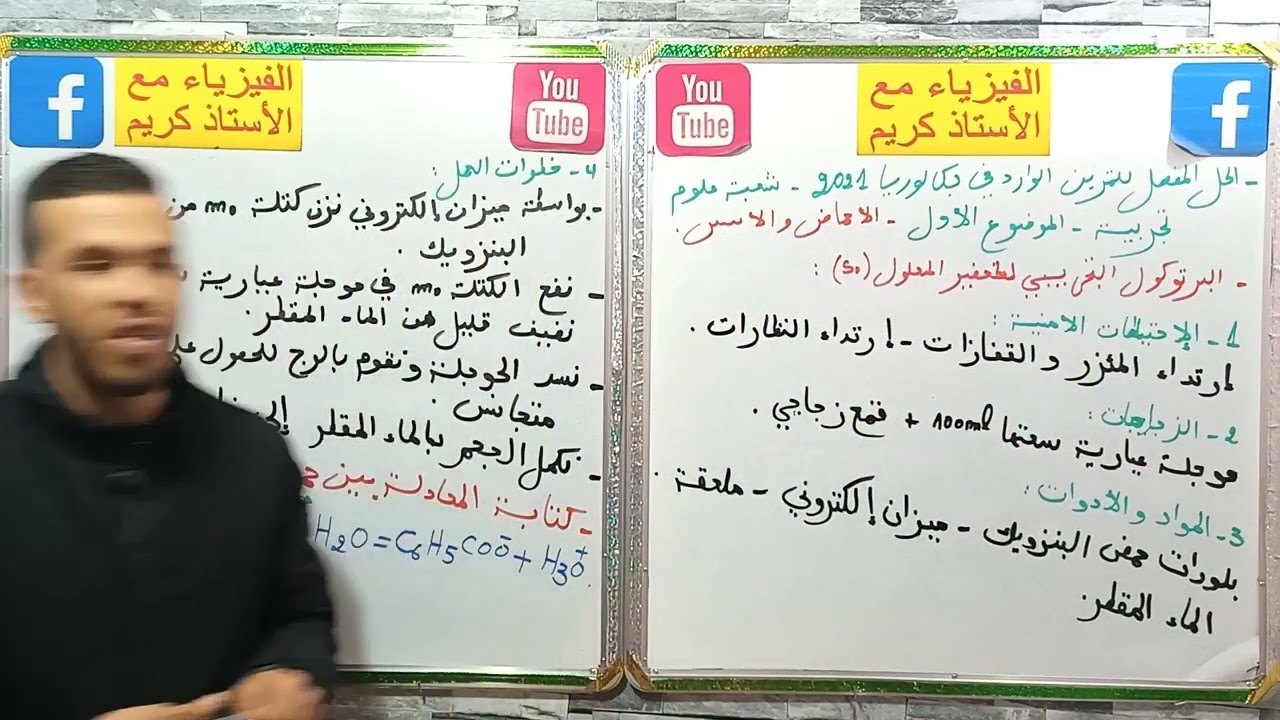 الفيزياء مع
الأستاذ كريم
You
Tube
f
- الحل المفصل للتمرين الوارد في بكالوريا 2021 - شعبة علوم
تجريبية - الموضوع الأول - الأحماض والأسس.
- البرتوكول التجريبي لتحضير المحلول (S₀) :
1 - الإحتياطات الأمنية :
إرتداء المئزر والقفازات - إرتداء النظارات.
2 - الزجاجيات :
حوجلة عيارية سعتها 100ml + قمع زجاجي.
3 - المواد والأدوات :
بلورات حمض البنزويك - ميزان إلكتروني - ملعقة.
الماء المقطر.
الفيزياء مع
الأستاذ كريم
You
Tube
f
4 - خطوات العمل :
- بواسطة ميزان إلكتروني نزن كتلة m₀ من
البنزويك.
- نضع الكتلة m₀ في حوجلة عيارية
نضيف قليل من الماء المقطر.
- نسد الحوجلة ونقوم بالرج للحصول على
متجانس.
- نكمل الحجم بالماء المقطر إلى
- كتابة المعادلة بين
H₂O = C₆H₅COO⁻ + H₃O⁺